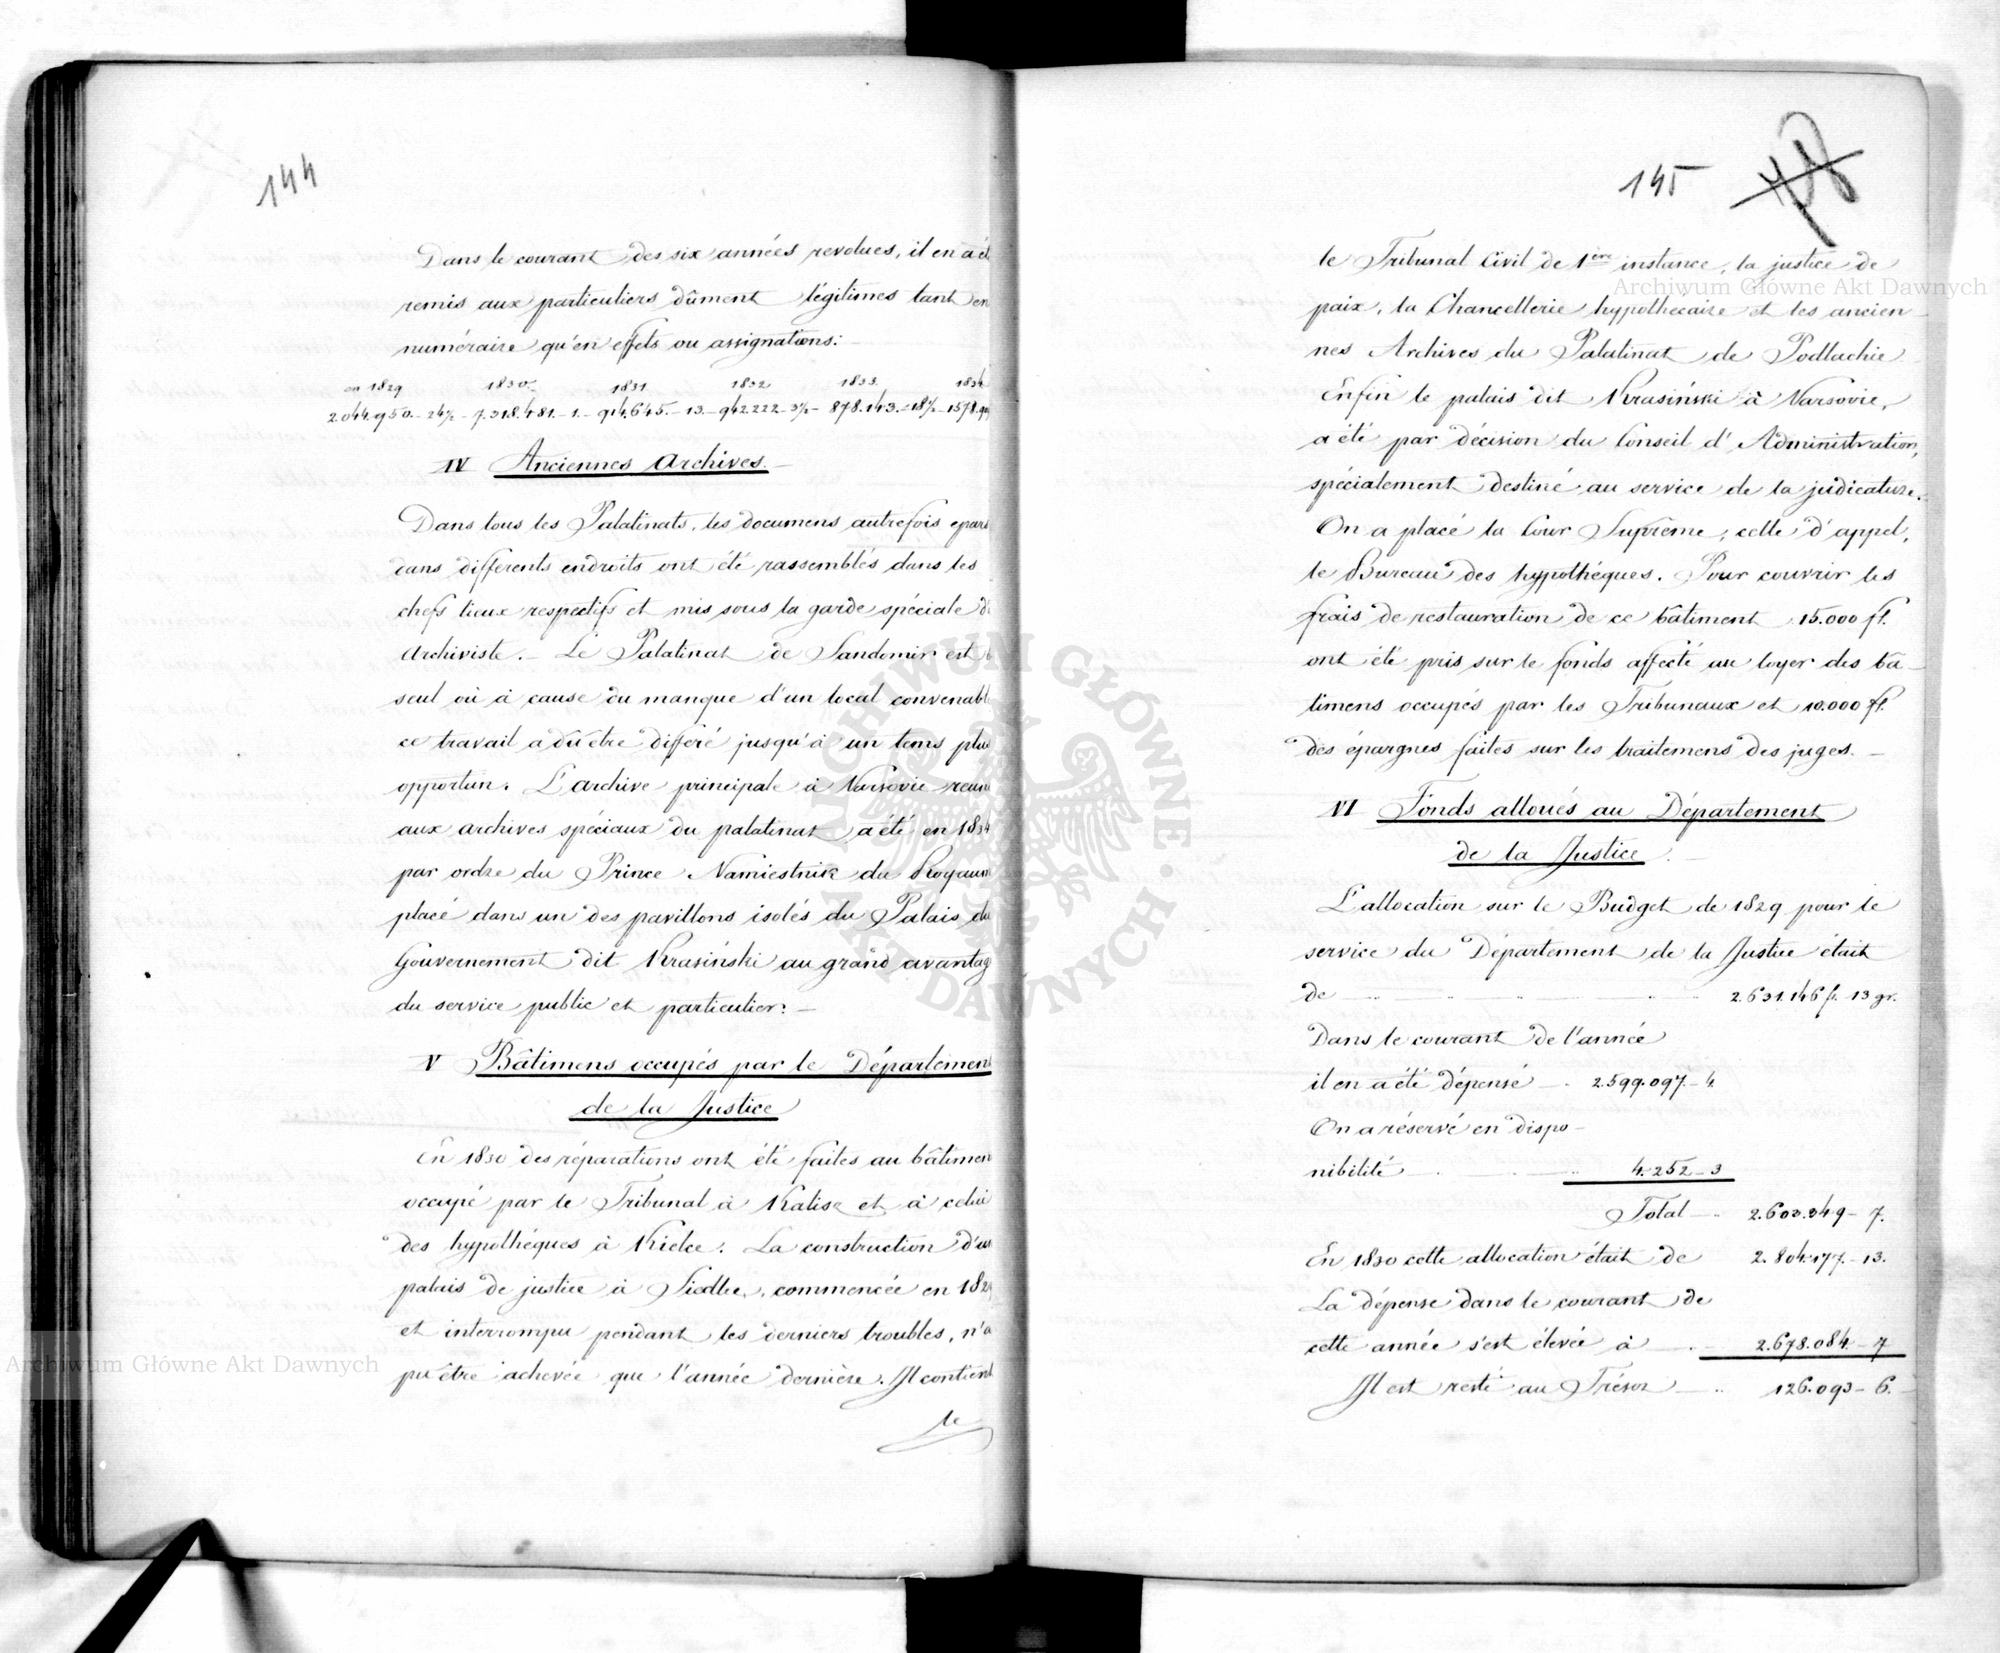 144
Dans le courant des six années revolues, il en a é
remis aux particuliers dûment légitimes tant en
numéraire qu'en effets ou assignations:
en 1829 1830. 1831 1832 1833. 1834
2.044.950.- 24½ - 7.318.481. - 1. - 914.645. - 13. - 942.222 - 3½ - 878.143. - 18½ - 1578.
IV Anciennes Archives. -
Dans tous les Palatinats, les documens autrefois epars
dans différents endroits ont été rassemblés dans les
chefs lieux respectifs et mis sous la garde spéciale d
Archiviste. - Le Palatinat de Sandomir est
seul où à cause du manque d'un local convenabl
ce travail a dû etre différé jusqu'à un tems plus
opportun. L'archive principale à Varsovie reun
aux archives spéciaux du palatinat a été en 1834
par ordre du Prince Namiestnik du Royaum
placé dans un des pavillons isolés du Palais du
Gouvernement dit Krasiński au grand avantag
du service public et particulier. -
V Bâtimens occupés par le Département
de la Justice
En 1830 des réparations ont été faites au bâtimen
occupé par le Tribunal à Kalisz et à celui
des hypothéques à Kielce. La construction d'un
palais de justice à Siedlce, commencée en 182
et interrompu pendant les derniers troubles, n'a
pu être achevée que l'année dernière. Il contient
le
145
le Tribunal Civil de 1ère instance, la justice de
paix, la Chancellerie hypothécaire et les ancien-
nes Archives du Palatinat de Podlachie
Enfin le palais dit Krasiński à Varsovie,
a été par décision du Conseil d'Administration,
spécialement destiné au service de la judicature.
On a placé la Cour Suprême, celle d'appel,
le Bureau des hypothéques. Pour couvrir les
frais de restauration de ce bâtiment 15.000 fl.
ont été pris sur le fonds affecté au loyer des bâ-
timens occupés par les Tribunaux et 10.000 fl.
des épargnes faites sur les traitemens des juges. -
VI Fonds alloués au Département
de la Justice. -
L'allocation sur le Budget de 1829 pour le
service du Département de la Justice était
de 2.631.146 fl. 13 gr.
Dans le courant de l'année
il en a été dépensé - 2.599.097 - 4
On a réservé en dispo-
nibilité 4.252 - 3
Total - 2.603.349 - 7.
En 1830 cette allocation était de 2.804.177. - 13.
La dépense dans le courant de
cette année s'est élevée à 2.678.084. - 7
Il est resté au Trésor - 126.093 - 6.
Archiwum Główne Akt Dawnych
ARCHIWUM GŁÓWNE · AKT DAWNYCH ·
Archiwum Główne Akt Dawnych